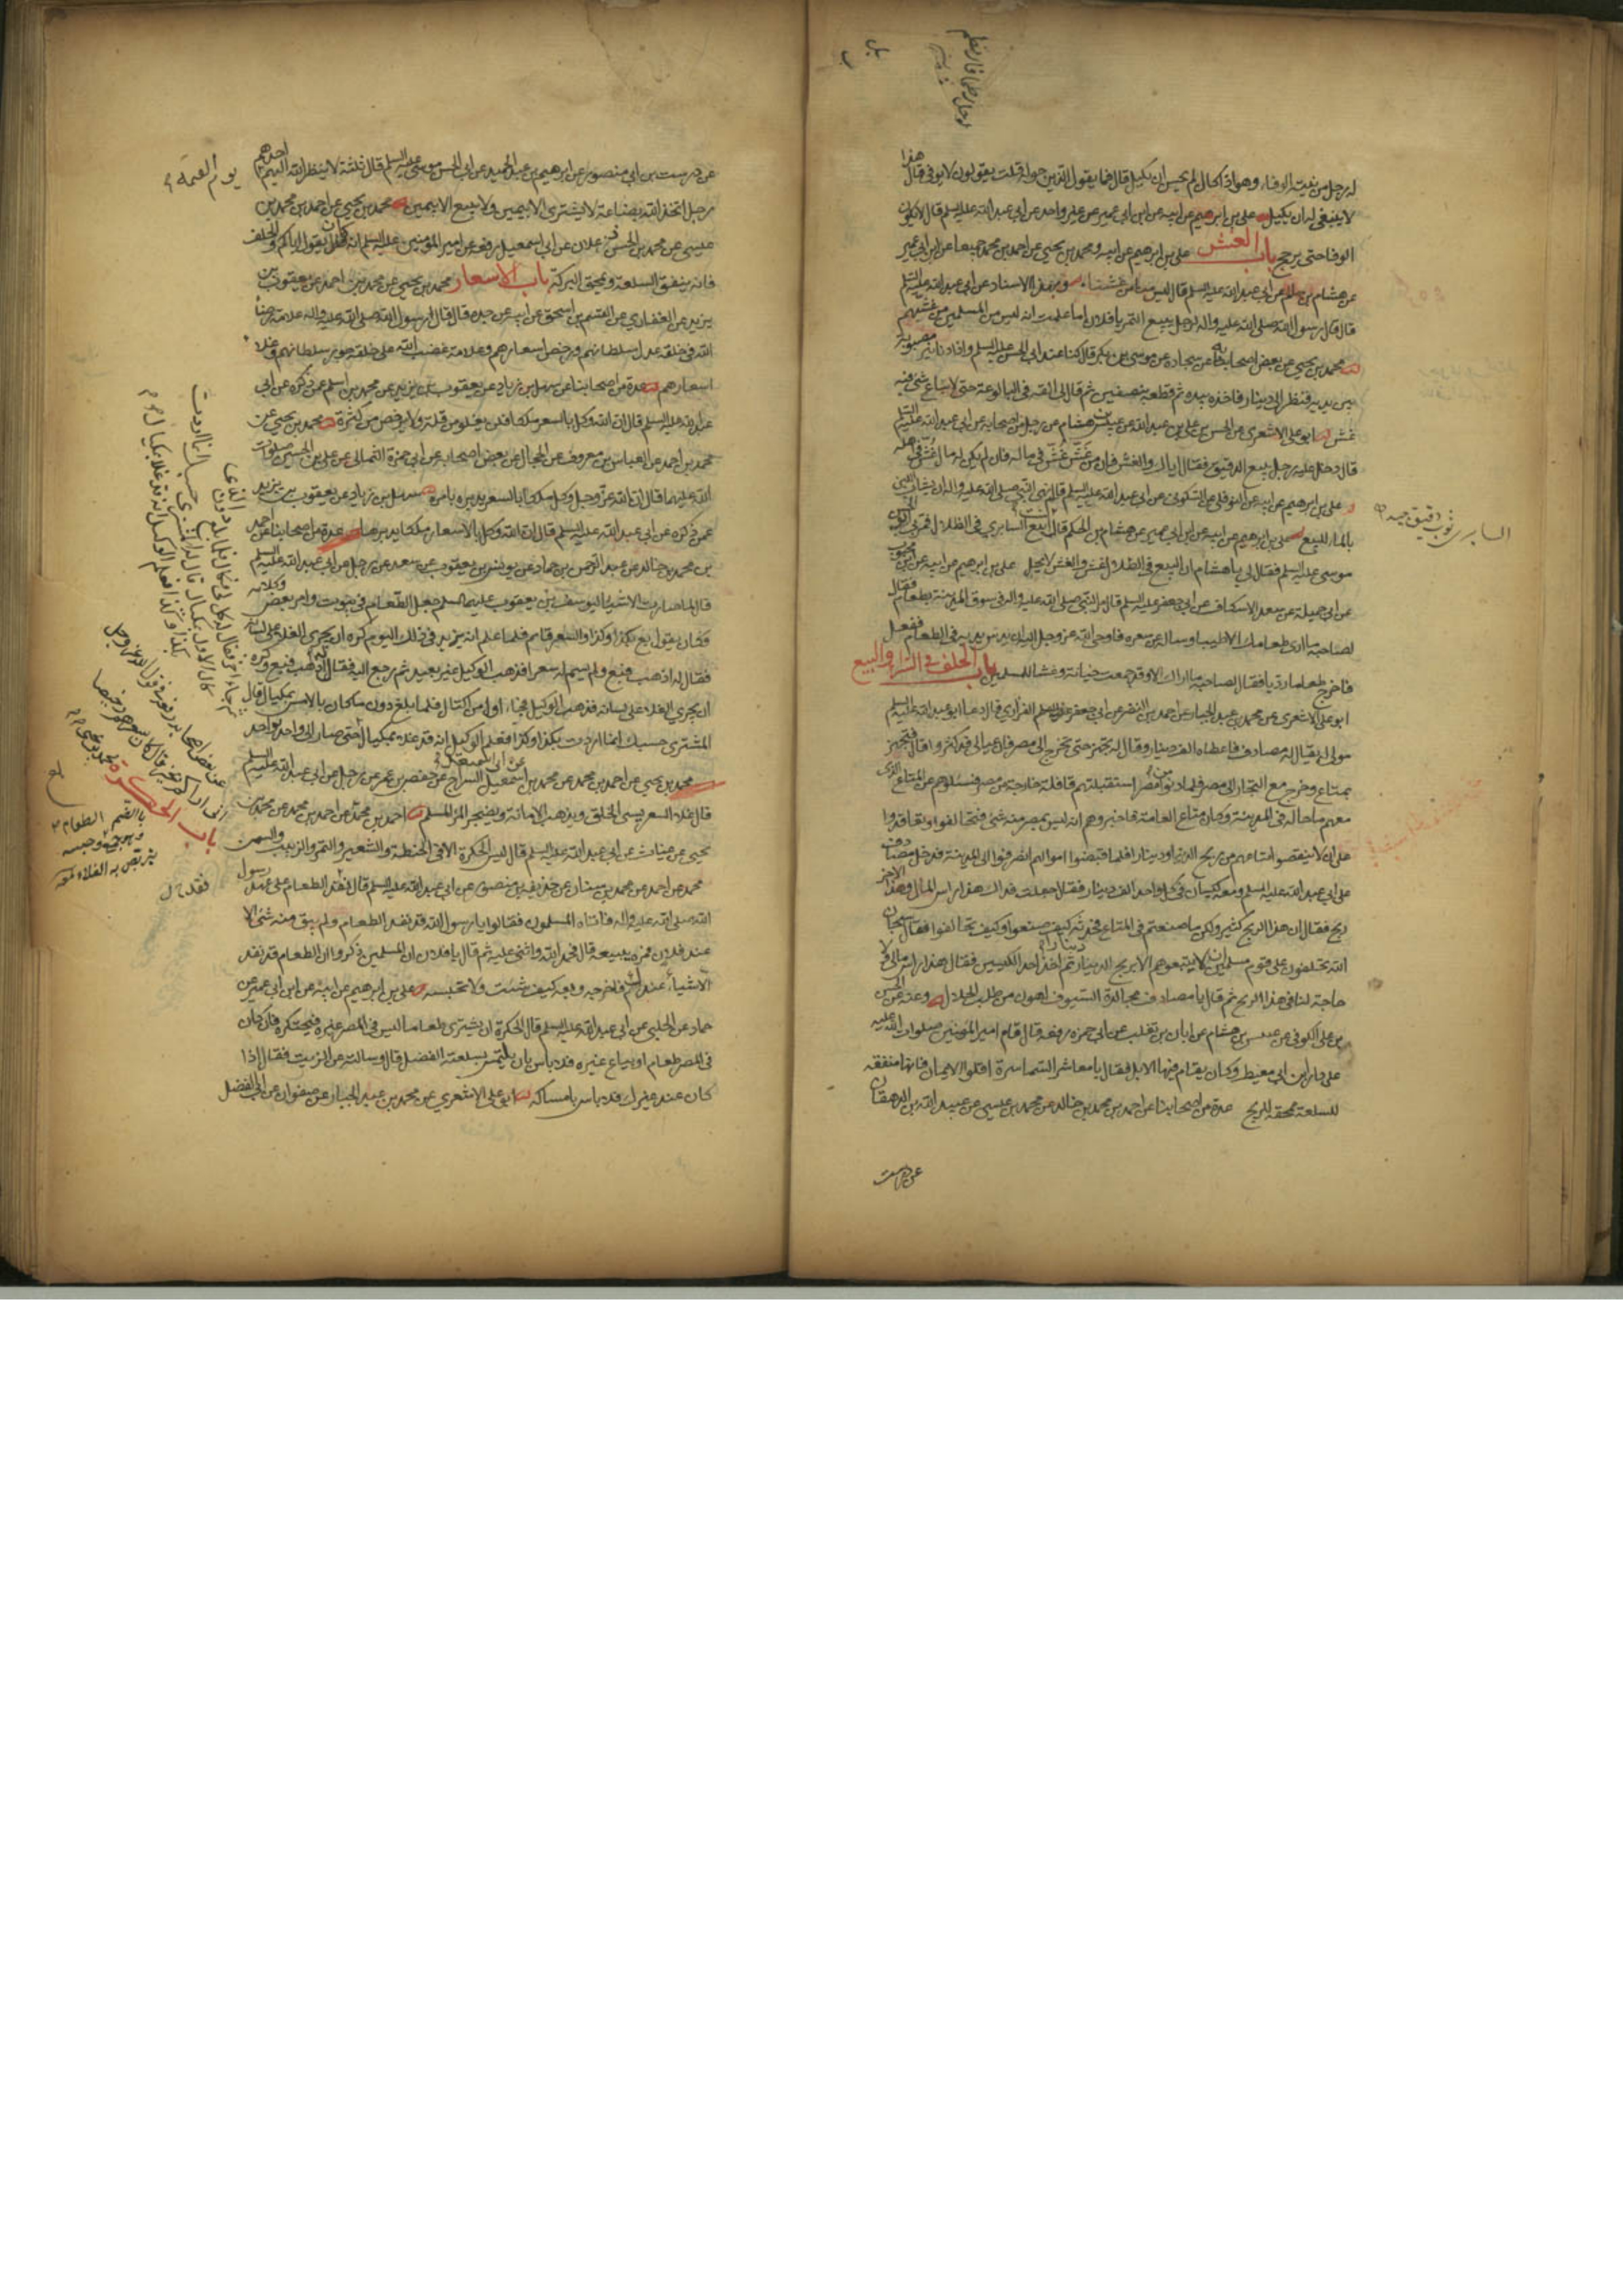 له رجل من نيته الوفاء وهو اذا كال لم يحسن ان يكيل قال فما يقول الذين حوله قلت يقولون لا يوفى قال هذا
لا ينبغى له ان يكيل علي بن ابرهيم عن ابيه عن ابن ابى عمير عن غير واحد عن ابى عبد الله عليه السلم قال لا يكون
الوفا حتى يرجح باب الغش على بن ابرهيم عن ابيه ومحمد بن يحيى عن احمد بن محمد جميعا عن ابن ابى عمير
عن هشام بن سالم عن ابى عبد الله عليه السلم قال ليس منا من غشنا وبهذا الاسناد عن ابى عبد الله عليه السلم
قال قال رسول الله صلى الله عليه واله لرجل يبيع التمر يا فلان اما علمت انه ليس من المسلمين من غشهم
محمد بن يحيى عن بعض اصحابنا عن سجاده عن موسى بن بكر قال كنا عند ابى الحسن عليه السلم واذا دنانير مصبوبة
بين يديه فنظر الى دينار فاخذه بيده ثم قطعه بنصفين ثم قال لى القه فى البالوعة حتى لا يباع شئ فيه
غش ابو على الاشعرى عن الحسن بن على بن عبد الله عن عبيس بن هشام عن رجل من اصحابه عن ابى عبد الله عليه السلم
قال دخل عليه رجل يبيع الدقيق فقال اياك والغش فان من غش غش فى ماله فان لم يكن له مال غش فى اهله
على بن ابرهيم عن ابيه عن النوفلى عن السكونى عن ابى عبد الله عليه السلم قال نهى النبى صلى الله عليه واله ان يشاب اللبن
بالماء للبيع على بن ابرهيم عن ابيه عن ابن ابى عمير عن هشام بن الحكم قال كنت ابيع السابرى فى الظلال فمر بى ابو الحسن
موسى عليه السلم فقال لى يا هشام ان البيع فى الظلال غش والغش لا يحل على بن ابرهيم عن ابيه عن ابن محبوب
عن ابى جميلة عن سعد الاسكاف عن ابى جعفر عليه السلم قال مر النبى صلى الله عليه واله فى سوق المدينة بطعام فقال
لصاحبه ما ارى طعامك الا طيبا وساله عن سعره فاوحى الله عز وجل اليه ان يدس يديه فى الطعام ففعل
فاخرج طعاما رديا فقال لصاحبه ما اراك الا وقد جمعت خيانة وغشا للمسلمين باب الحلف فى الشراء والبيع
ابو على الاشعرى عن محمد بن عبد الجبار عن احمد بن النضر عن ابى جعفر الفزارى قال دعا ابو عبد الله عليه السلم
مولى له يقال له مصادف فاعطاه الف دينار وقال له تجهز حتى تخرج الى مصر فان عيالى قد كثروا قال فتجهز
بمتاع وخرج مع التجار الى مصر فلما دنوا من مصر استقبلتهم قافلة خارجة من مصر فسئلوهم عن المتاع الذى
معهم ما حاله فى المدينة وكان متاع العامة فاخبروهم انه ليس بمصر منه شئ فتحالفوا وتعاقدوا
على ان لا ينقصوا متاعهم من ربح الدينار دينارا فلما قبضوا اموالهم انصرفوا الى المدينة فدخل مصادف
على ابى عبد الله عليه السلم ومعه كيسان فى كل واحد الف دينار فقال جعلت فداك هذا راس المال وهذا الاخر
ربح فقال ان هذا الربح كثير ولكن ما صنعتم فى المتاع فحدثه كيف صنعوا وكيف تحالفوا فقال سبحان
الله تحلفون على قوم مسلمين ان لا تبيعوهم الا بربح الدينار دينارا ثم اخذ احد الكيسين فقال هذا راس مالى ولا
حاجة لنا فى هذا الربح ثم قال يا مصادف مجالدة السيوف اهون من طلب الحلال وعنه عن الحسن
بن على الكوفى عن عبيس بن هشام عن ابان بن تغلب عن ابى حمزه رفعه قال قام امير المؤمنين صلوات الله عليه
على دار ابن ابى معيط وكان يقام فيها الابل فقال يا معاشر السماسرة اقلوا الايمان فانها منفقه
للسلعة ممحقه للربح عدة من اصحابنا عن احمد بن محمد بن خالد عن محمد بن عيسى عن عبيد الله بن الدهقان
عن درست
السابرى ثوب رقيق جيد
عن درست بن ابى منصور عن ابرهيم بن عبد الحميد عن ابى الحسن موسى عليه السلم قال ثلثة لا ينظر الله اليهم احدهم
يوم القيمة
رجل اتخذ الله بضاعة لا يشترى الا بيمين ولا يبيع الا بيمين محمد بن يحيى عن احمد بن محمد بن
عيسى عن محمد بن الحسن زعلان عن ابى اسمعيل رفعه عن امير المؤمنين عليه السلم انه كان يقول اياكم والحلف
فانه ينفق السلعة ويمحق البركة باب الاسعار محمد بن يحيى عن محمد بن احمد عن يعقوب بن
يزيد عن الغفارى عن القسم بن اسحق عن ابيه عن جده قال قال رسول الله صلى الله عليه واله علامة رضا
الله فى خلقه عدل سلطانهم ورخص اسعارهم وعلامة غضب الله على خلقه جور سلطانهم وغلاء
اسعارهم عدة من اصحابنا عن سهل بن زياد عن يعقوب بن يزيد عن محمد بن اسلم عمن ذكره عن ابى
عبد الله عليه السلم قال ان الله وكل بالسعر ملكا فلن يغلو من قلة ولا يرخص من كثرة محمد بن يحيى عن
محمد بن احمد عن العباس بن معروف عن الحجال عن بعض اصحابه عن ابى حمزة الثمالى عن على بن الحسين صلوات
الله عليهما قال ان الله عز وجل وكل ملكا بالسعر يدبره بامره سهل بن زياد عن يعقوب بن يزيد
عمن ذكره عن ابى عبد الله عليه السلم قال ان الله وكل بالاسعار ملكا يدبرها عدة من اصحابنا عن احمد
بن محمد بن خالد عن عبد الرحمن بن حماد عن يونس بن يعقوب عن سعد عن رجل عن ابى عبد الله عليه السلم
قال لما صارت الاشياء ليوسف بن يعقوب عليهما السلم جعل الطعام فى بيوت وامر بعض وكلائه
فكان يقول بع بكذا وكذا والسعر قايم فلما علم انه يزيد فى ذلك اليوم كره ان يجرى الغلاء على لسانه
فقال له اذهب فبع ولم يسم له سعرا فذهب الوكيل غير بعيد ثم رجع اليه فقال له اذهب فبع وكره
ان يجرى الغلاء على لسانه فذهب الوكيل فجاء اول من اكتال فلما بلغ دون ما كان بالامس بمكيال قال
المشترى حسبك انما اردت بكذا وكذا فعلم الوكيل انه قد غلا بمكيال حتى صار الى واحد بواحد
محمد بن يحيى عن احمد بن محمد عن محمد بن اسمعيل السراج عن حفص بن عمر عن رجل عن ابى عبد الله عليه السلم
قال غلاء السعر يسئ الخلق ويذهب الامانة ويضجر المرء المسلم احمد بن محمد عن احمد بن محمد عن محمد بن
يحيى عن غياث عن ابى عبد الله عليه السلم قال ليس الحكرة الا فى الحنطة والشعير والتمر والزبيب والسمن
محمد عن احمد عن محمد بن سنان عن حذيفة بن منصور عن ابى عبد الله عليه السلم قال نفد الطعام على عهد رسول
الله صلى الله عليه واله فاتاه المسلمون فقالوا يا رسول الله قد نفد الطعام ولم يبق منه شئ الا
عند فلان فمره يبيعه قال فحمد الله واثنى عليه ثم قال يا فلان ان المسلمين ذكروا ان الطعام قد نفد
الا شيئا عندك فاخرجه وبعه كيف شئت ولا تحبسه على بن ابرهيم عن ابيه عن ابن ابى عمير عن
حماد عن الحلبى عن ابى عبد الله عليه السلم قال الحكرة ان يشترى طعاما ليس فى المصر غيره فيحتكره فان كان
فى المصر طعام او يباع غيره فلا باس بان يلتمس بسلعته الفضل قال وسالته عن الزيت فقال اذا
كان عند غيرك فلا باس بامساكه ابو على الاشعرى عن محمد بن عبد الجبار عن صفوان عن ابى الفضل
باب الحكرة